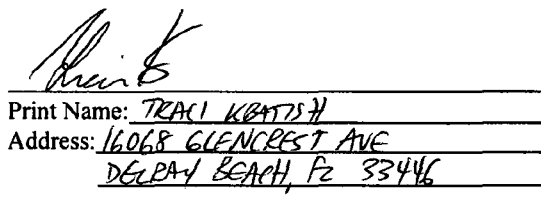 Print Name: TRACI KBATISH
Address: 16068 GLENCREST AVE
DELRAY BEACH, FL 33446